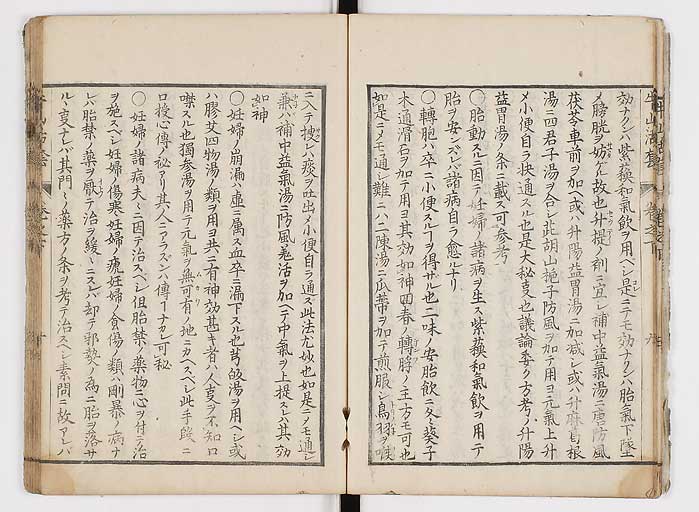 効ナクンバ紫蘓和氣飲ヲ用ベシ是ニテモ効ナクンバ胎氣下墜
メ膀胱ヲ妨ルナリ故也升提ノ剤ニ宜シ補中益氣湯ニ唐防風
茯苓車前ヲ加ヘ或ハ升陽益胃湯ニ加减シ或ハ升麻葛根
湯ニ四君子湯ヲ合シ此胡山梔子防風ヲ加テ用ヨ元氣上升
メ小便自ラ快通スル也是大秘叓也議論委ク方考ノ升陽
益胃湯ノ条ニ載ス可参考
〇胎動スルニ因テ妊婦ノ諸病ヲ生ス紫蘓和氣飲ヲ用テ
胎ヲ安ンズレバ諸病自ラ愈ルナリ
〇轉胞ハ卒ニ小便スルヿヲ得ザル也二味ノ安胎飲ニ冬葵子
木通滑石ヲ加テ用ヨ其効如神回春ノ轉脬ノ主方モ可也
如是ニメモ通シ難ニハ二陳湯ニ瓜蔕ヲ加テ煎服シ鳥羽ヲ喉
ニ入テ探レハ痰ヲ吐出メ小便自ラ通ズ此法尤妙也如是ニメモ通シ
兼バ補中益氣湯ニ防風羌活ヲ加ニテ中氣ヲ上提スレバ其効
如神
〇妊婦ノ崩漏ハ虚ニ属ス血卒ニ漏下スル也芎皈湯ヲ用ベシ或
ハ膠艾四物湯ノ類ヲ用ヨ共ニ有神効甚キ者ハ人叓ヲ不知口
噤スル也獨参湯ヲ用テ元氣ヲ無可有ノ地ニカヘスベシ此手段ニ
口授心傳ノ秘アリ其人ニアラズンハ傳ヿナカレ可秘
〇妊婦ノ諸病夫〻ニ因テ治スベシ但胎禁ノ藥物ニ心ヲ付テ治
ヲ施スベシ妊婦ノ傷寒妊婦ノ瘧妊婦ノ食傷ノ類ハ剛暴ノ病ナ
レバ胎禁ノ藥ヲ厭テ治ヲ緩〻ニスレバ却テ邪勢ノ為ニ胎ヲ落サ
ルヽ叓ナレバ其門〻ノ藥方ノ条ヲ考テ治スベシ素問ニ故アレバ